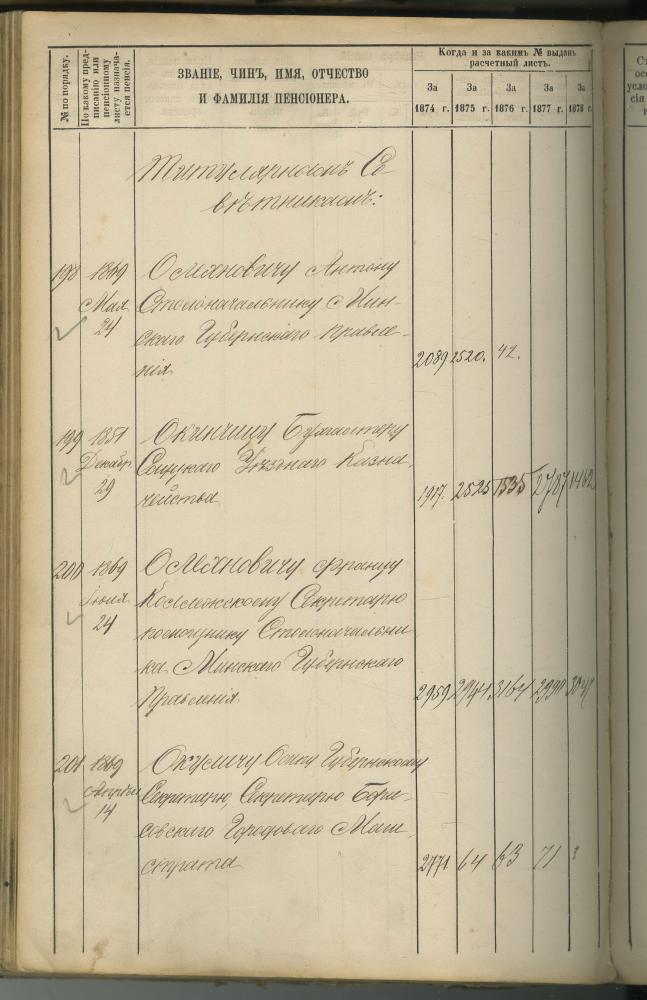 № по порядку.
По какому пред-
писанію или
пенсіонному
листу назнача-
ется пенсія.
ЗВАНІЕ, ЧИНЪ, ИМЯ, ОТЧЕСТВО
И ФАМИЛІЯ ПЕНСІОНЕРА.
Когда и за какимъ № выданъ
расчетный листъ.
За За За За За
1874 г. 1875 г. 1876 г. 1877 г. 1878 г.
Титулярнымъ Со-
вѣтникамъ:
198 1869 Антону
Мая Столоначальнику Мин-
24 скаго Губернскаго Правле-
нія 2089 2520. 42.
199 1851 Окинчицу
Декабр. Уѣзднаго Казна
29 чейства 1917. 2525 1535 2787 1462
200 1869 Францу
Іюня Коллежскому Секретарю
24 помощнику Столоначальни
ка Минскаго Губернскаго
Правленія 2959 2944 3164 2990
201 1869 Окуличу Осипу Губернскому
Апрѣля Секретарю, Секретарю Бори-
14 совскаго Городоваго Маги
страта 2771 64 63 71